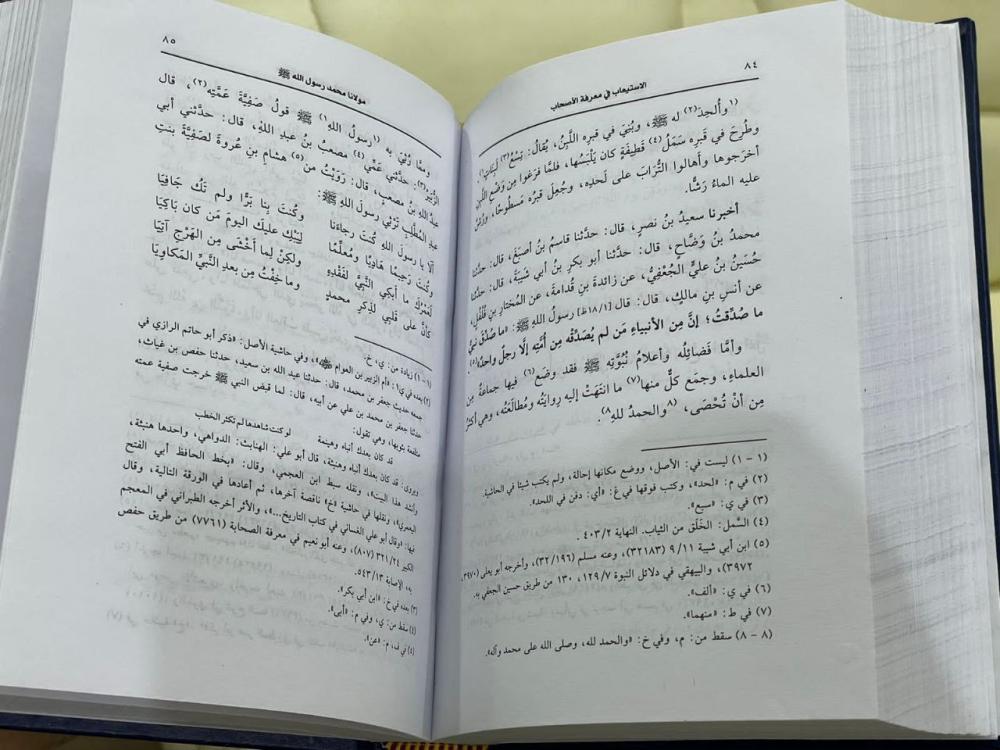 ٨٤
الاستيعاب في معرفة الأصحاب
(١وأُلحِدَ(٢) له ﷺ، وبُنيَ في قبرِه اللَّبِنُ، يُقالُ: تِسْعُ(٣) لَبِناتٍ١)
وطُرِحَ في قبرِه سَمَلُ(٤) قَطيفَةٍ كان يَلْبَسُها، فلمَّا فرَغوا مِن وَضْعِ اللَّبِنِ
أخرَجوها وأهالوا التُّرَابَ على لَحدِه، وجُعِل قبرُه مَسطُوحًا، ورُشَّ
عليه الماءُ رَشًّا.
أخبرنا سعيدُ بنُ نصرٍ، قال: حدَّثنا قاسمُ بنُ أصبَغَ، قال: حدَّثنا
محمدُ بنُ وَضَّاحٍ، قال: حدَّثنا أبو بكرِ بنُ أبي شَيبةَ، قال: حدَّثنا
حُسَيْنُ بنُ عليٍّ الجُعْفِيُّ، عن زائدةَ بنِ قُدامةَ، عن المُختارِ بنِ فُلْفُلٍ،
عن أنسِ بنِ مالكٍ، قال: قال [١٨/١ظ] رسولُ اللهِ ﷺ: «ما صُدِّقَ نبيٌّ
ما صُدِّقتُ؛ إنَّ مِن الأنبياءِ مَن لم يُصَدِّقْه مِن أمَّتِه إلَّا رجلٌ واحدٌ»(٥).
وأمَّا فَضائلُه وأعلامُ نُبُوَّتِه ﷺ فقد وضَع(٦) فيها جماعةٌ مِن
العلماءِ، وجمَع كلٌّ منها(٧) ما انتَهَتْ إليه رِوايَتُه ومُطالَعَتُه، وهي أكثرُ
مِن أنْ تُحْصَى، (٨والحمدُ للهِ٨).
(١ - ١) ليست في: الأصل، ووضع مكانها إحالة، ولم يكتب شيئا في الحاشية.
(٢) في م: «لحد»، وكتب فوقها في غ: «أي: دفن في اللحد».
(٣) في ي: «سبع».
(٤) السَّمل: الخَلَق من الثياب. النهاية ٤٠٣/٢.
(٥) ابن أبي شيبة ٩/١١ (٣٢١٨٣)، وعنه مسلم (٣٢/١٩٦)، وأخرجه أبو يعلى (٣٩٧٠،
٣٩٧٢)، والبيهقي في دلائل النبوة ١٢٩/٧، ١٣٠ من طريق حسين الجعفي به.
(٦) في ي: «ألف».
(٧) في ط: «منهما».
(٨ - ٨) سقط من: م، وفي خ: «والحمد لله، وصلى الله على محمد وآله».
٨٥
مولانا محمد رسول الله ﷺ
وممَّا رُثِيَ به (١رسولُ اللهِ١) ﷺ قولُ صَفِيَّةَ عَمَّتِه(٢)، قال
الزُّبَيْرُ(٣): حدَّثني عَمِّي(٤) مصعبُ بنُ عبدِ اللهِ، قال: حدَّثني أبي
عبدُ اللهِ بنُ مصعبٍ، قال: رَوَيْتُ من(٥) هشامِ بنِ عُروةَ لصَفيَّةَ بنتِ
عبدِ المُطَّلِبِ تَرْثي رسولَ اللهِ ﷺ:
ألَا يا رسولَ اللهِ كُنتَ رجاءَنا وكُنتَ بِنا بَرًّا ولم تَكُ جَافِيَا
وكُنتَ رَحيمًا هَادِيًا ومُعلِّمًا لِيَبْكِ عليك اليومَ مَن كان بَاكِيَا
لَعَمْرُكَ ما أبكي النَّبيَّ لفَقْدِهِ ولكِنْ لِما أَخْشَى مِن الهَرْجِ آتِيَا
كأنَّ على قلبي لذِكرِ محمدٍ وما خِفْتُ مِن بعدِ النَّبيِّ المَكاوِيَا
(١ - ١) زيادة من: ي، خ.
(٢) بعده في ي١: «أم الزبير بن العوام ﷺ»، وفي حاشية الأصل: «ذكر أبو حاتم الرازي في
جمعه حديث جعفر بن محمد، قال: حدثنا عبد الله بن سعيد، حدثنا حفص بن غياث،
حدثنا جعفر بن محمد بن علي عن أبيه، قال: لما قبض النبي ﷺ خرجت صفية عمته
متلفعة بثوبها، وهي تقول:
قد كان بعدك أنباء وهينمة لو كنت شاهدها لم تكثر الخطب
وروى: قد كان بعدك أنباء وهنبثة، قال أبو علي: الهنابث: الدواهي، واحدها هنبثة،
وأنشد هذا البيت»، ونقله سبط ابن العجمي، وقال: «بخط الحافظ أبي الفتح
اليعمري»، ونقلها في حاشية «خ» ناقصة آخرها، ثم أعادها في الورقة التالية، وقال
فيها: «وقال أبو علي الغساني في كتاب التاريخ...»، والأثر أخرجه الطبراني في المعجم
الكبير ٣٢١/٢٤ (٨٠٧)، وعنه أبو نعيم في معرفة الصحابة (٧٧٦١) من طريق حفص
به، الإصابة ٥٤٣/١٣.
(٣) بعده في خ: «ابن أبي بكر».
(٤) سقط من: ي، وفي م: «أبى».
(٥) في ف، م: «عن».